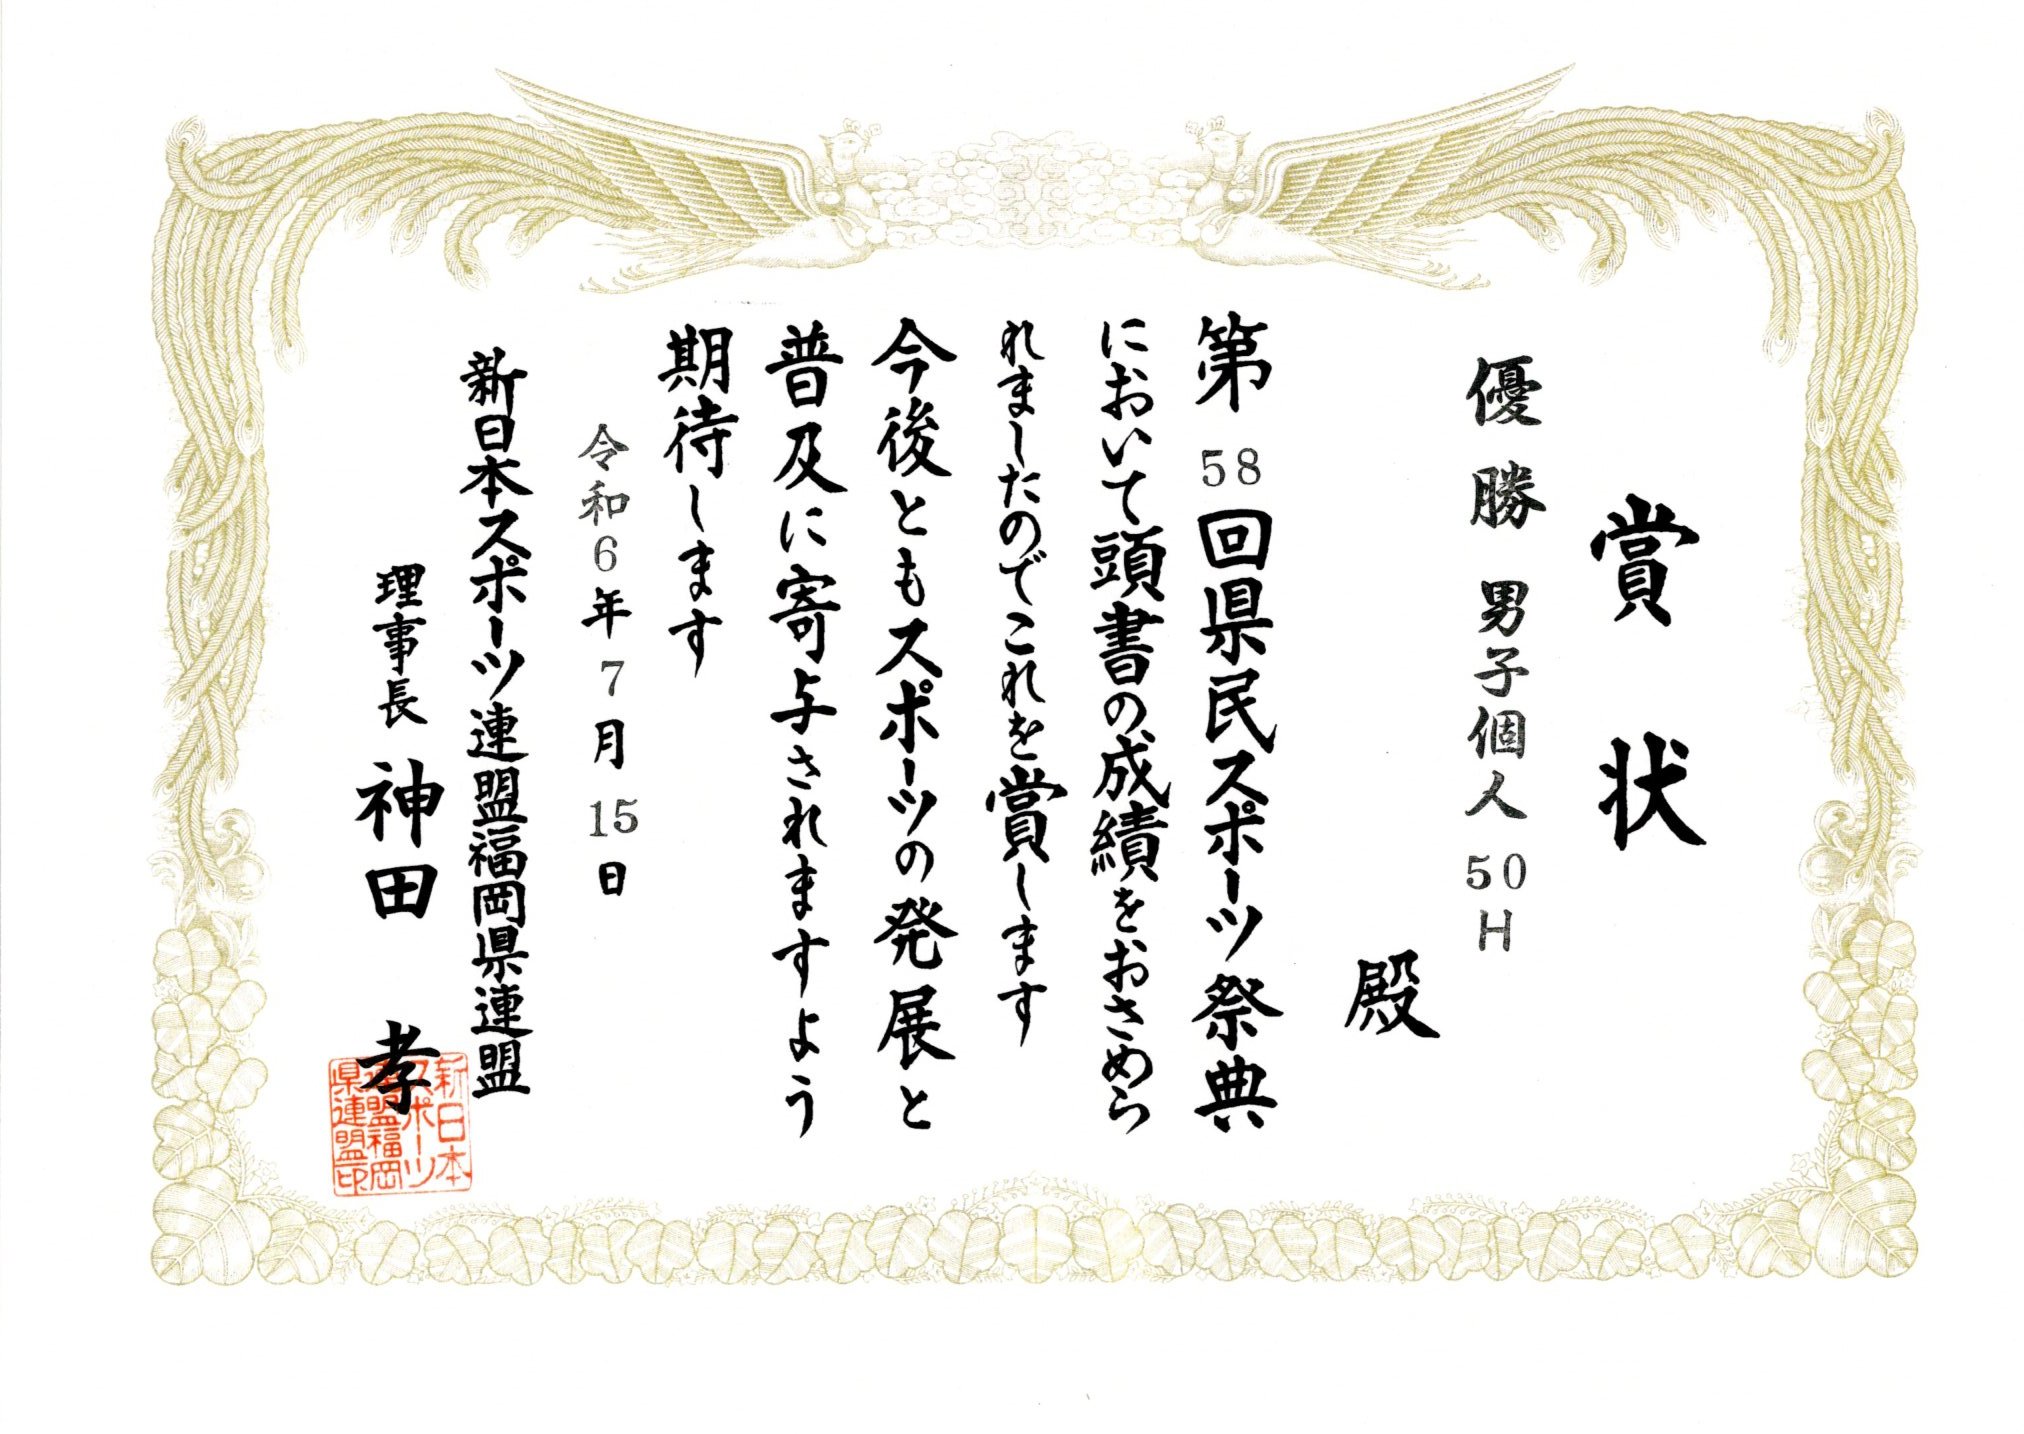 賞状
優勝 男子個人 50H
殿
第58回県民スポーツ祭典
において頭書の成績をおさめら
れましたのでこれを賞します
今後ともスポーツの発展と
普及に寄与されますよう
期待します
令和6年7月15日
新日本スポーツ連盟福岡県連盟
理事長 神田 孝
新日本
スポーツ
連盟福岡
県連盟印